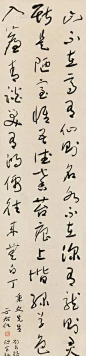 山不在高有仙則名水不在深有龍則靈
斯是陋室惟吾德馨苔痕上階綠草色
入簾青談笑有鴻儒往來無白丁
先生
于右任